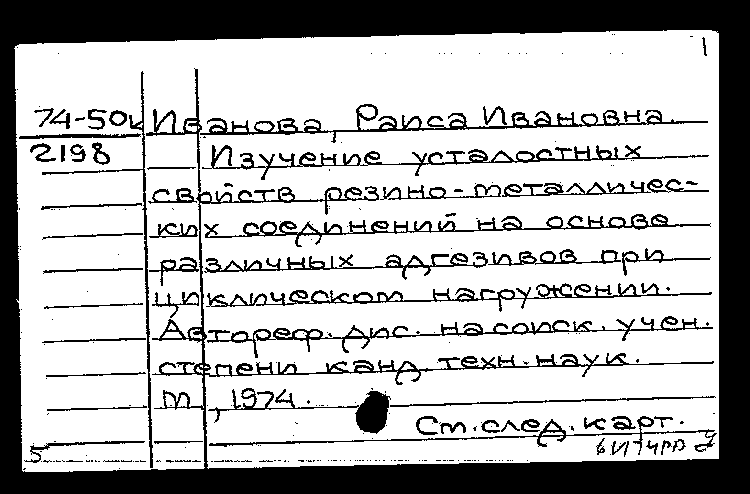 1
74-50к Иванова, Раиса Ивановна.
2198 Изучение усталостных
свойств резино-металличес-
ких соединений на основе
различных адгезивов при
циклическом нагружении.
Автореф. дис. на соиск. учен.
степени канд. техн. наук.
М, 1974.
См. след. карт.
5